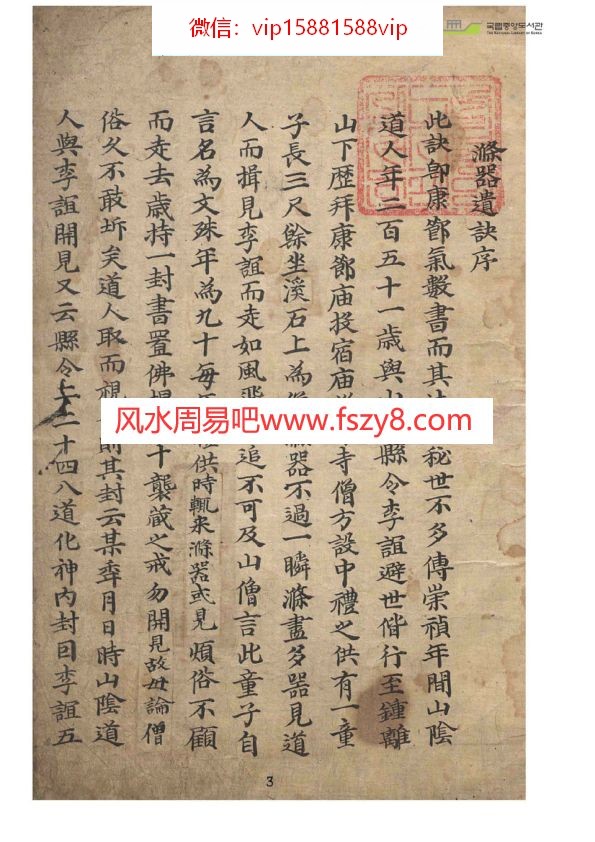 微信：vip15881588vip
국립중앙도서관
THE NATIONAL LIBRARY OF KOREA
滌器遺訣序
此訣卽康節氣數書而其
秘世不多傳崇禎年間山陰
道人年二百五十一歲與山
縣令李誼避世偕行至鍾離
山下歷拜康節庙投宿庙
寺僧方設中禮之供有一童
子長三尺餘坐溪石上為
器不過一瞬滌盡多器見道
人而揖見李誼而走如風
追不可及山僧言此童子自
言名為文殊年為九十每
供時輒来滌器或見煩俗不顧
而走去歲持一封書置佛
十襲藏之戒勿開見故毋論僧
俗久不敢坼矣道人取而視
其封云某年月日時山陰道
人與李誼開見又云縣令
二十四八道化神內封曰李誼五
风水周易吧www.fszy8.com
3